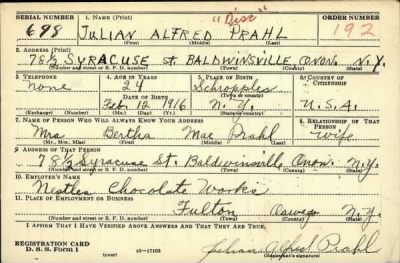 SERIAL NUMBER 1. NAME (Print) "Disc" ORDER NUMBER
698 JULIAN ALFRED PRAHL 192
(First) (Middle) (Last)
2. ADDRESS (Print)
78½ SYRACUSE St. BALDWINSVILLE ONON. N.Y.
(Number and street or R. F. D. number) (Town) (County) (State)
3. TELEPHONE 4. AGE IN YEARS 5. PLACE OF BIRTH 6. COUNTRY OF CITIZENSHIP
None 24 Schropples
DATE OF BIRTH (Town or county)
Feb. 12 1916 N.Y. U.S.A.
(Exchange) (Number) (Mo.) (Day) (Yr.) (State or country)
7. NAME OF PERSON WHO WILL ALWAYS KNOW YOUR ADDRESS 8. RELATIONSHIP OF THAT PERSON
Mrs Bertha Mae Prahl wife
(Mr., Mrs., Miss) (First) (Middle) (Last)
9. ADDRESS OF THAT PERSON
78½ Syracuse St. Baldwinsville Onon. N.Y.
(Number and street or R. F. D. number) (Town) (County) (State)
10. EMPLOYER'S NAME
Nestles Chocolate Works
11. PLACE OF EMPLOYMENT OR BUSINESS
Fulton Oswego N.Y.
(Number and street or R. F. D. number) (Town) (County) (State)
I AFFIRM THAT I HAVE VERIFIED ABOVE ANSWERS AND THAT THEY ARE TRUE.
REGISTRATION CARD
D. S. S. Form 1 (over) 16-17105 Julian Alfred Prahl
(Registrant's signature)